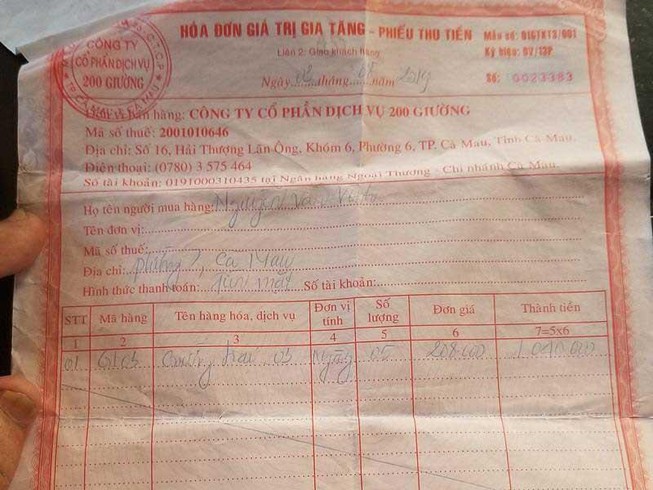 CÔNG TY
CỔ PHẦN DỊCH VỤ
200 GIƯỜNG
HÓA ĐƠN GIÁ TRỊ GIA TĂNG - PHIẾU THU TIỀN
Mẫu số: 01GTKT3/001
Liên 2: Giao khách hàng
Ký hiệu: 07/13P
Ngày 02 tháng 08 năm 2019
Số: 0023383
bán hàng: CÔNG TY CỔ PHẦN DỊCH VỤ 200 GIƯỜNG
Mã số thuế: 2001010646
Địa chỉ: Số 16, Hải Thượng Lãn Ông, Khóm 6, Phường 6, TP. Cà Mau, Tỉnh Cà Mau.
Điện thoại: (0780) 3 575 464
Số tài khoản: 0191000310435 tại Ngân hàng Ngoại Thương - Chi nhánh Cà Mau.
Họ tên người mua hàng: Nguyễn Văn
Tên đơn vị:
Mã số thuế:
Địa chỉ: phường 7, Cà Mau
Hình thức thanh toán: Tiền mặt Số tài khoản:
STT Mã hàng Tên hàng hóa, dịch vụ Đơn vị tính Số lượng Đơn giá Thành tiền
1 2 3 4 5 6 7=5x6
01 G103 03 Ngày 05 208.000 1.040.000